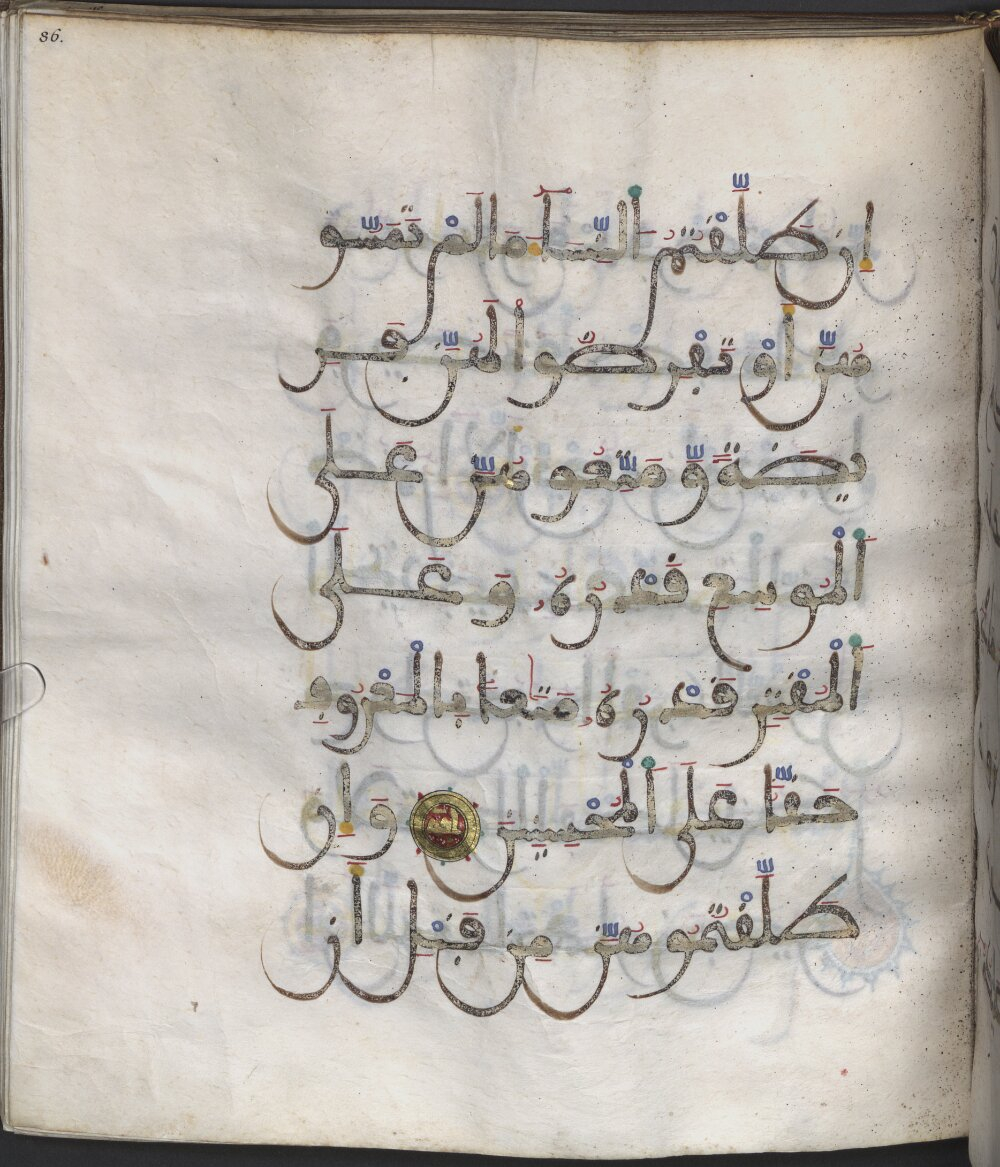 86.
إِن طَلَّقْتُمُ ٱلنِّسَآءَ مَا لَمْ تَمَسُّو
هُنَّ أَوْ تَفْرِضُوا لَهُنَّ فَرِ
يضَةً وَّمَتِّعُوهُنَّ عَلَى
ٱلْمُوسِعِ قَدْرُهُ وَعَلَى
ٱلْمُقْتِرِ قَدْرُهُ مَتَٰعًا بِالْمَعْرُوفِ
حَقًّا عَلَى ٱلْمُحْسِنِينَ وَإِن
طَلَّقْتُمُوهُنَّ مِن قَبْلِ أَن